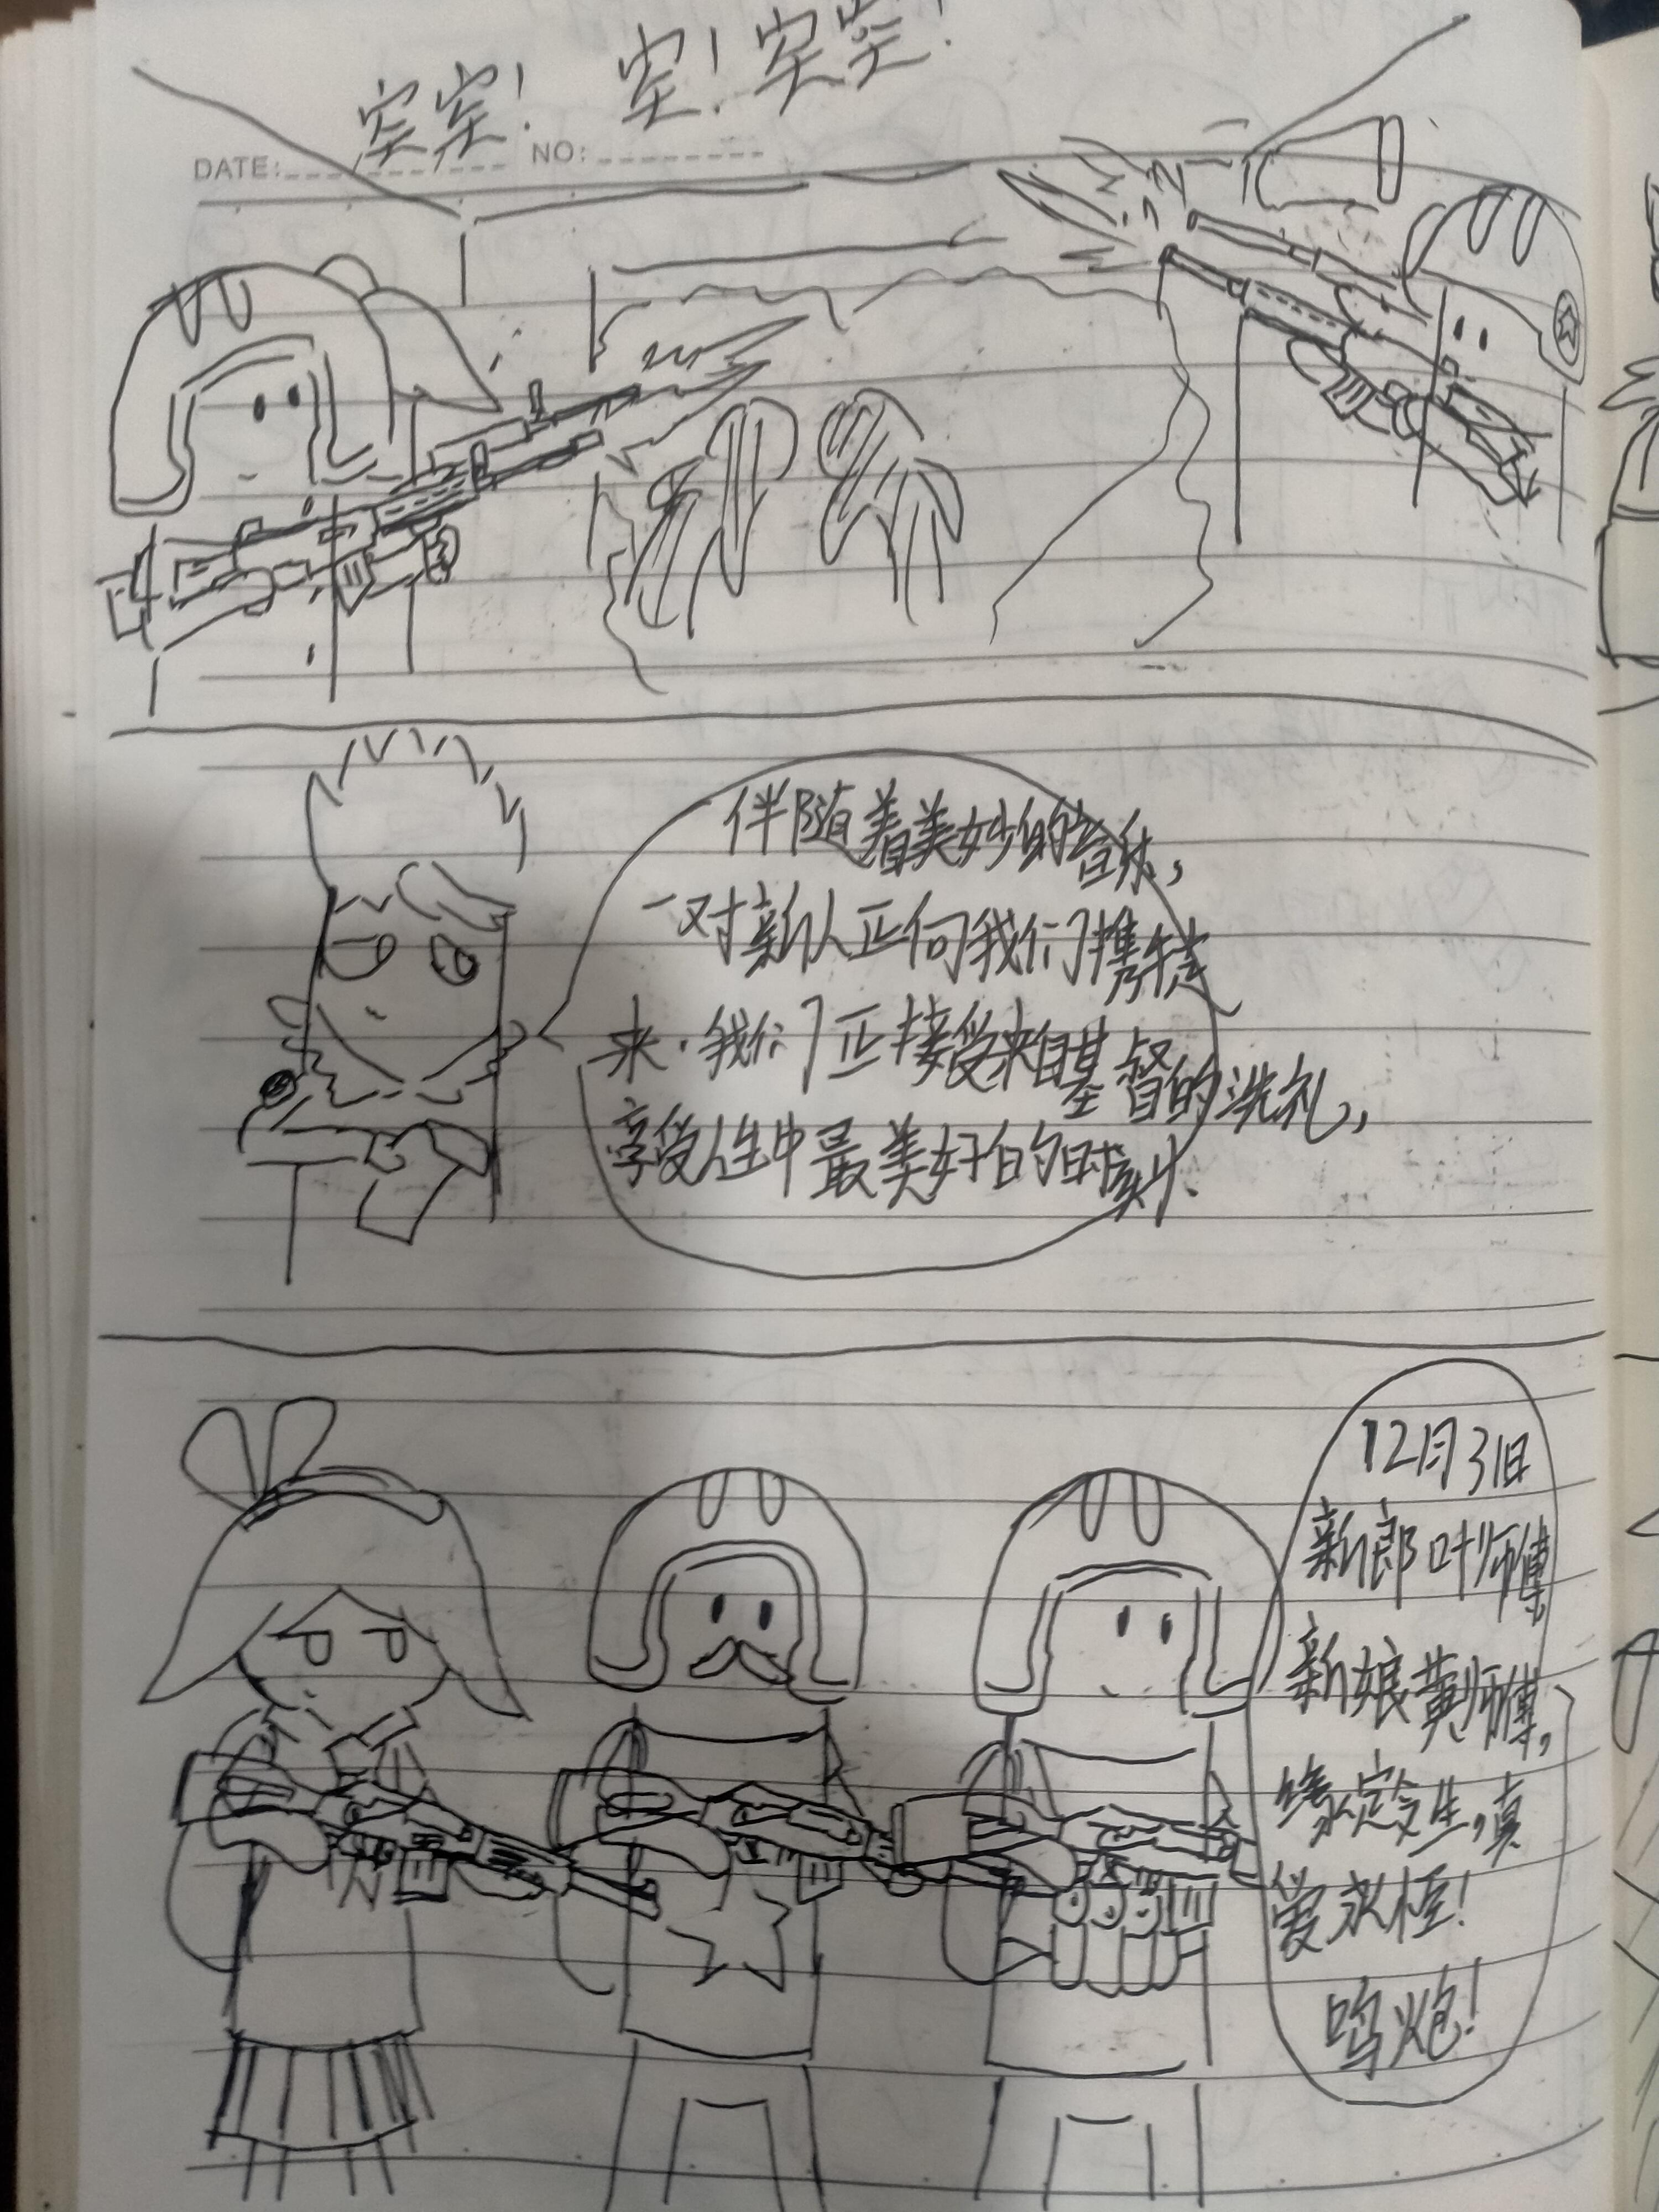 突突！ 突！突突！
DATE: NO:
伴随着美妙的音乐，
一对新人正向我们携手走
来.我们正接受来自基督的洗礼，
享受人生中最美好的时刻.
12月31日
新郎叶师傅
新娘黄师傅，
缘定今生，真
爱永恒！
鸣炮！